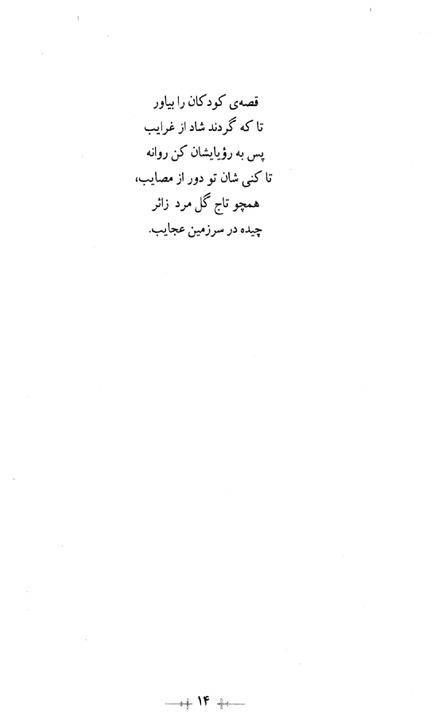 قصه‌ی کودکان را بیاور
تا که گردند شاد از غرایب
پس به رؤیایشان کن روانه
تا کنی شان تو دور از مصایب،
همچو تاج گل مرد زائر
چیده در سرزمین عجایب.
۱۴